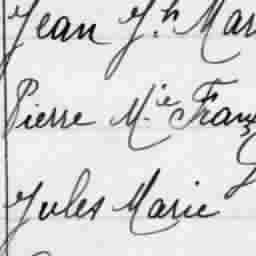 Jean J.h Mar
Pierre M.ie Franç
Jules Marie